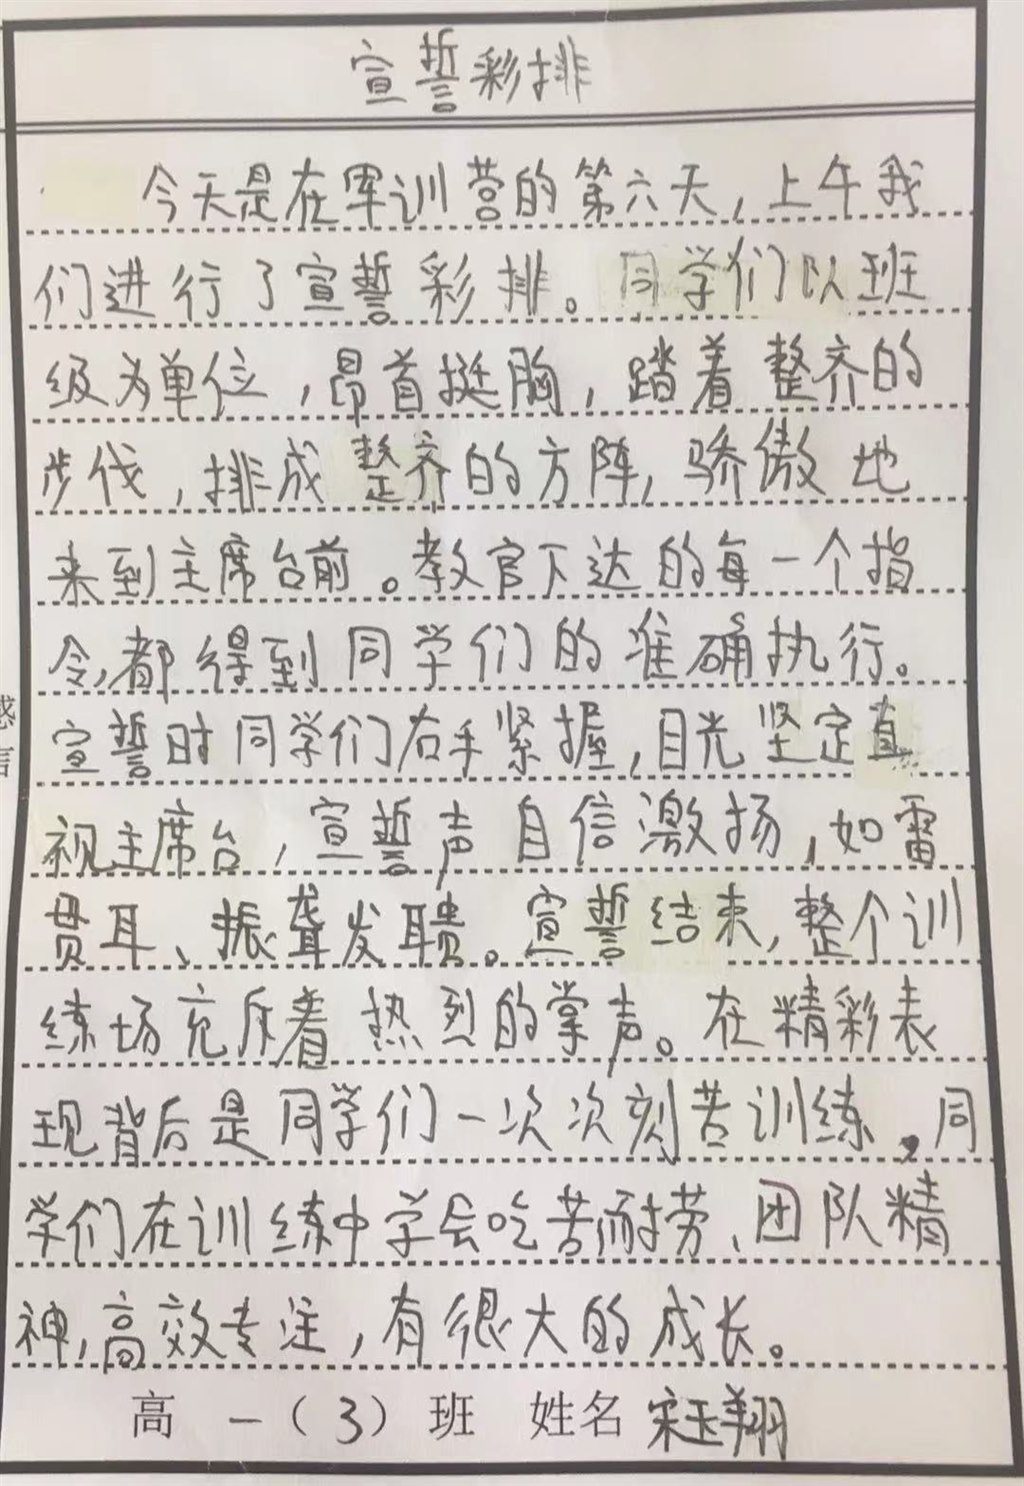 宣誓彩排
今天是在军训营的第六天,上午我
们进行了宣誓彩排。同学们以班
级为单位,昂首挺胸,踏着整齐的
步伐,排成整齐的方阵,骄傲地
来到主席台前。教官下达的每一个指
令,都得到同学们的准确执行。
宣誓时同学们右手紧握,目光坚定直
视主席台,宣誓声自信激扬,如雷
贯耳、振聋发聩。宣誓结束,整个训
练场充斥着热烈的掌声。在精彩表
现背后是同学们一次次刻苦训练,同
学们在训练中学会吃苦耐劳、团队精
神,高效专注,有很大的成长。
高一(3)班 姓名 宋玉翔